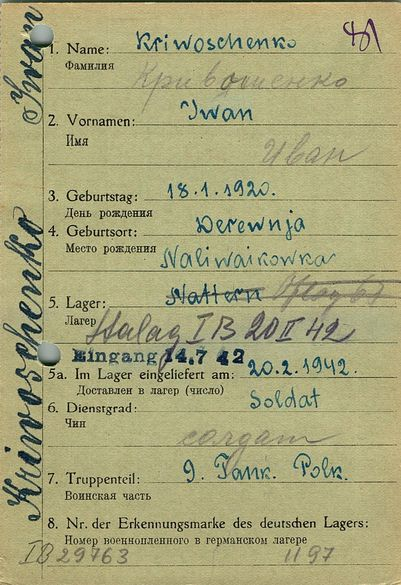 Kriwoschenko Iwan
81
1. Name: Kriwoschenko
Фамилия
Кривошенко
2. Vornamen: Iwan
Имя
Иван
3. Geburtstag: 18.1.1920.
День рождения
4. Geburtsort: Derewnja
Место рождения
Naliwaikowka
5. Lager: Nattern Oflag 63
Лагер
Stalag I B 20 II 42
Eingang 14.7 42
5a. Im Lager eingeliefert am: 20.2.1942.
Доставлен в лагер (число)
6. Dienstgrad: Soldat
Чин
солдат
7. Truppenteil: 9. Tank. Polk.
Воинская часть
8. Nr. der Erkennungsmarke des deutschen Lagers:
Номер военнопленного в германском лагере
IB 29763 1197